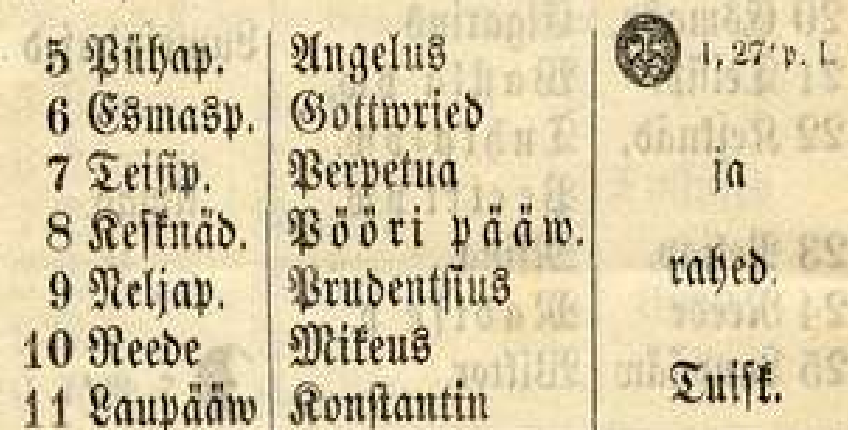 5 Pühap. Angelus 1, 27' p. l.
6 Esmasp. Gottwried
7 Teisip. Perpetua ja
8 Kesknäd. Pööri pääw.
9 Neljap. Prudentsius rahed.
10 Reede Mikeus
11 Laupääw Konstantin Tuisk.